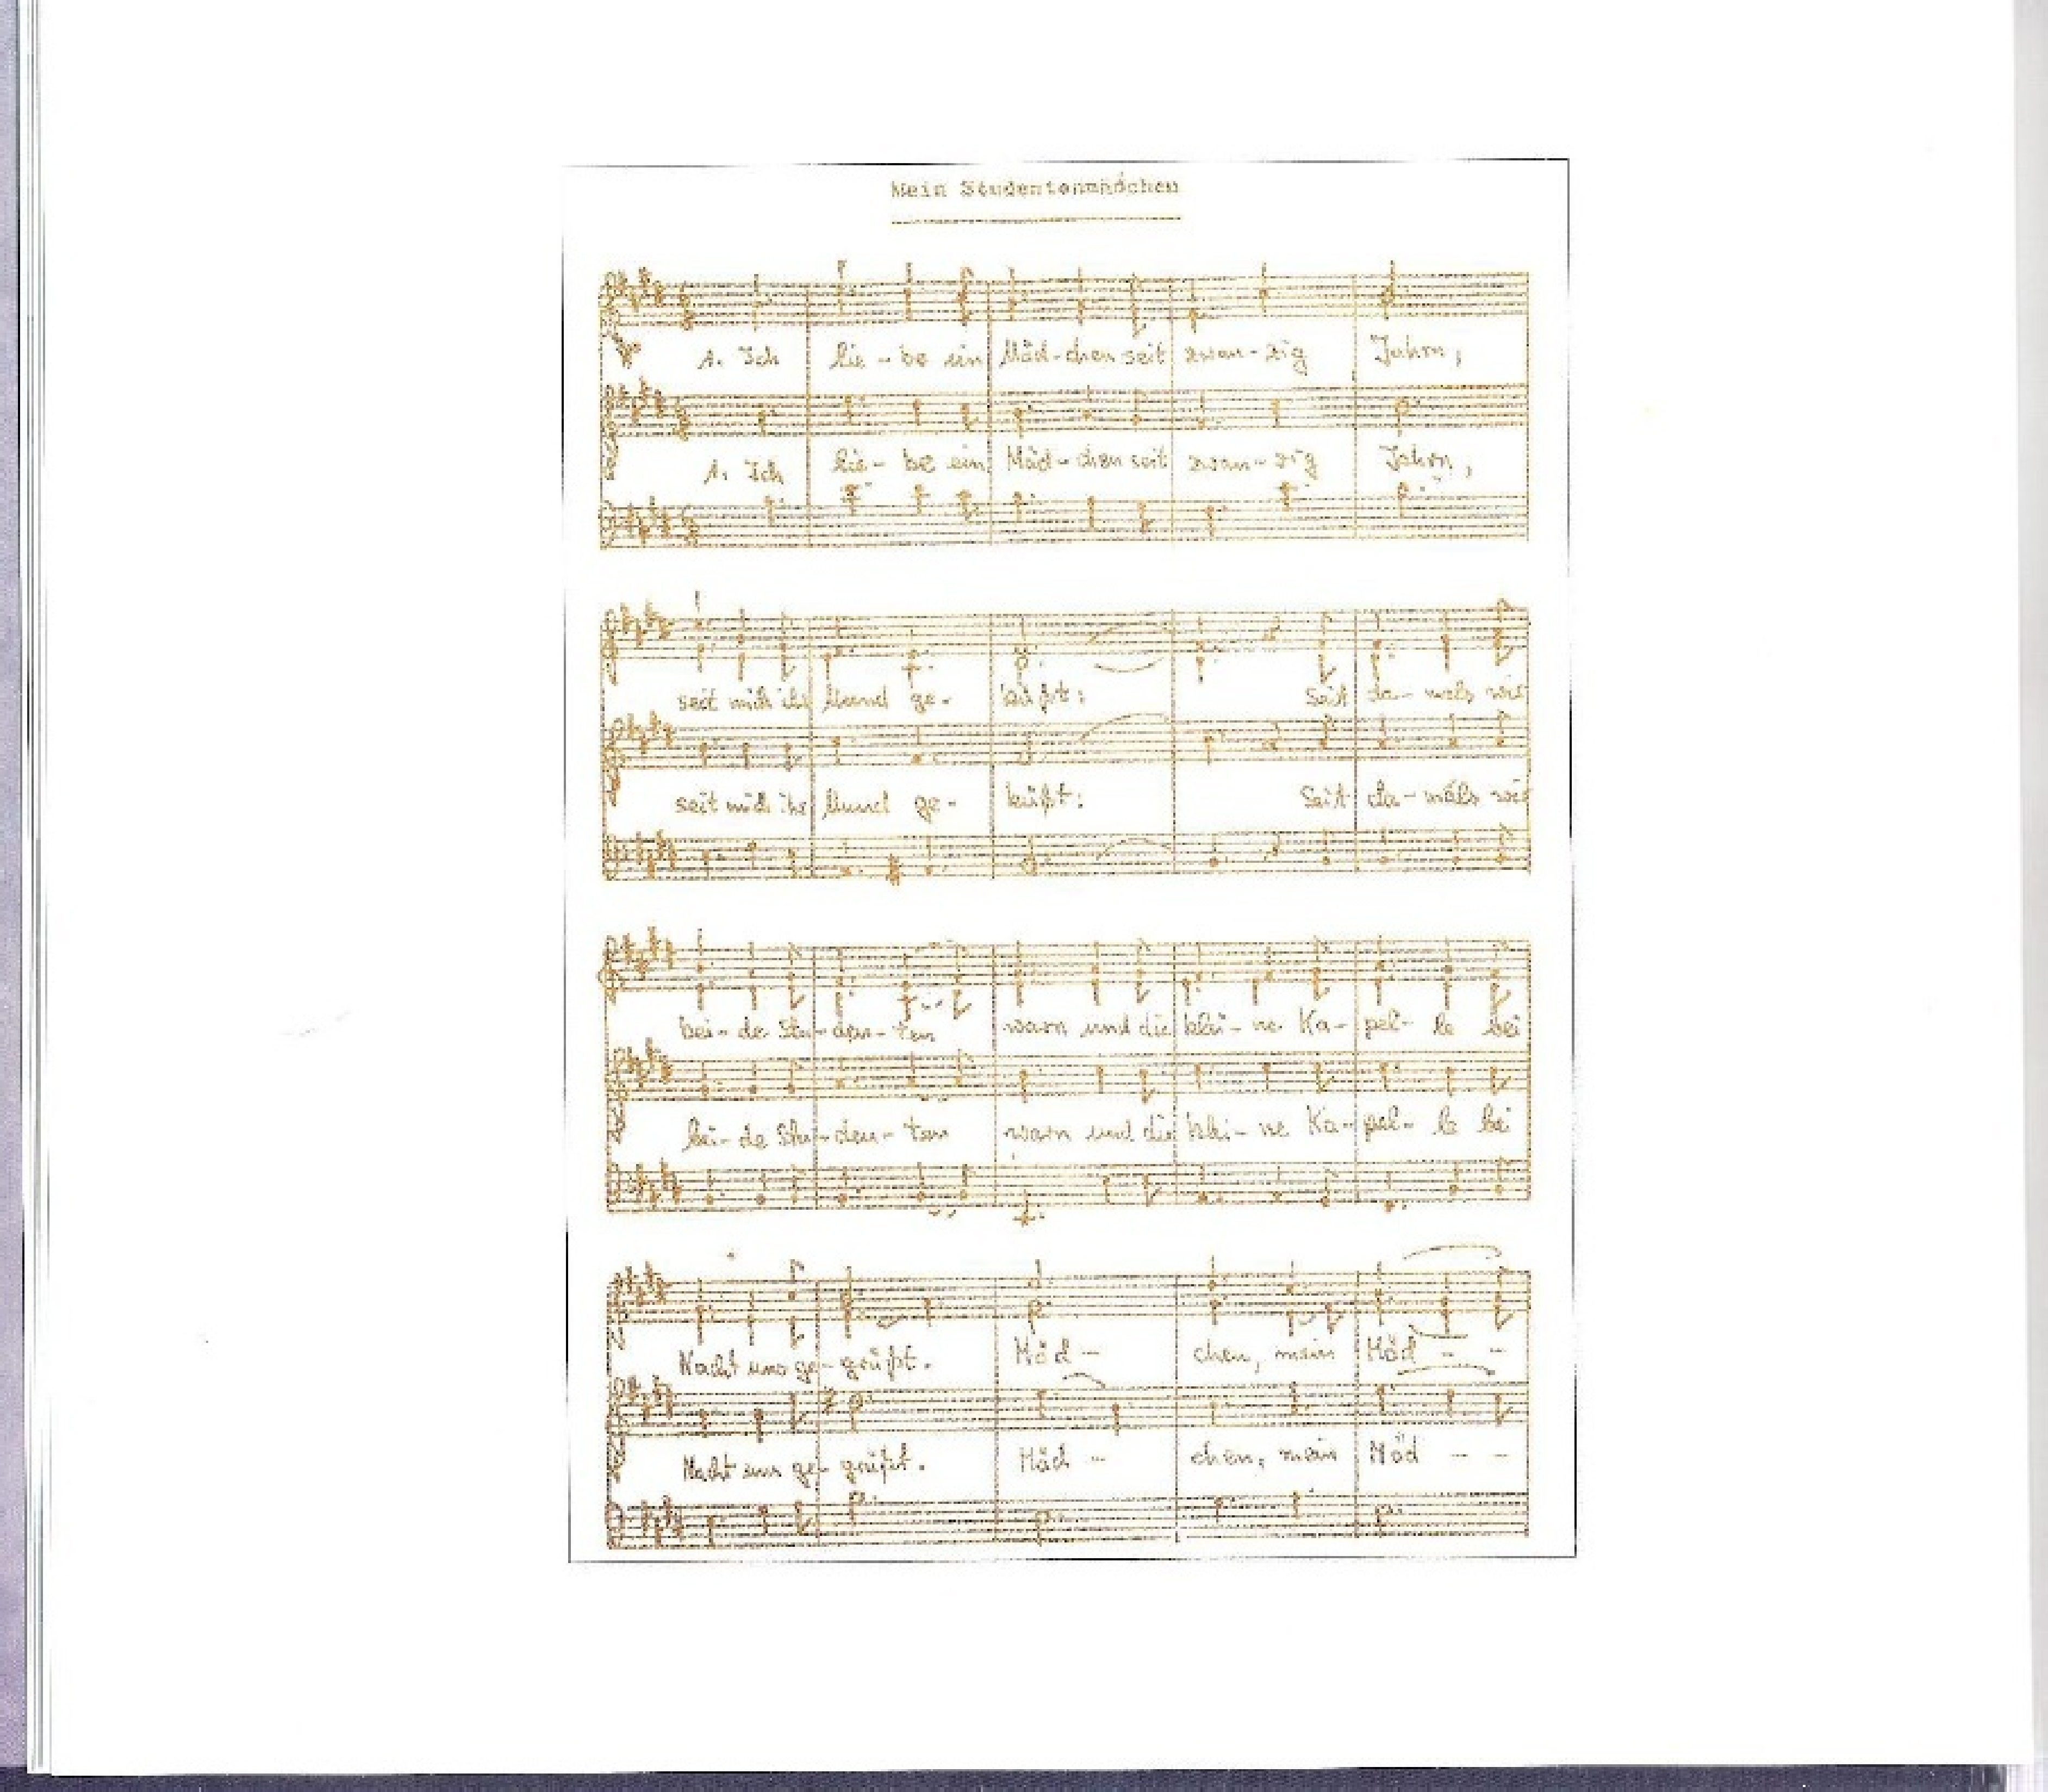 Mein Studentenmädchen
1. Ich lie - be ein Mäd - chen seit zwan - zig Jahrn,
1. Ich lie - be ein Mäd - chen seit zwan - zig Jahrn,
seit mich ihr Mund ge - küßt: Seit da - mals wir
seit mich ihr Mund ge - küßt: Seit da - mals wir
bei - de Stu - den - ten warn und die klei - ne Ka - pel - le bei
bei - de Stu - den - ten warn und die klei - ne Ka - pel - le bei
Nacht uns ge - grüßt. Mäd - chen, mein Mäd - -
Nacht uns ge - grüßt. Mäd - chen, mein Mäd - -